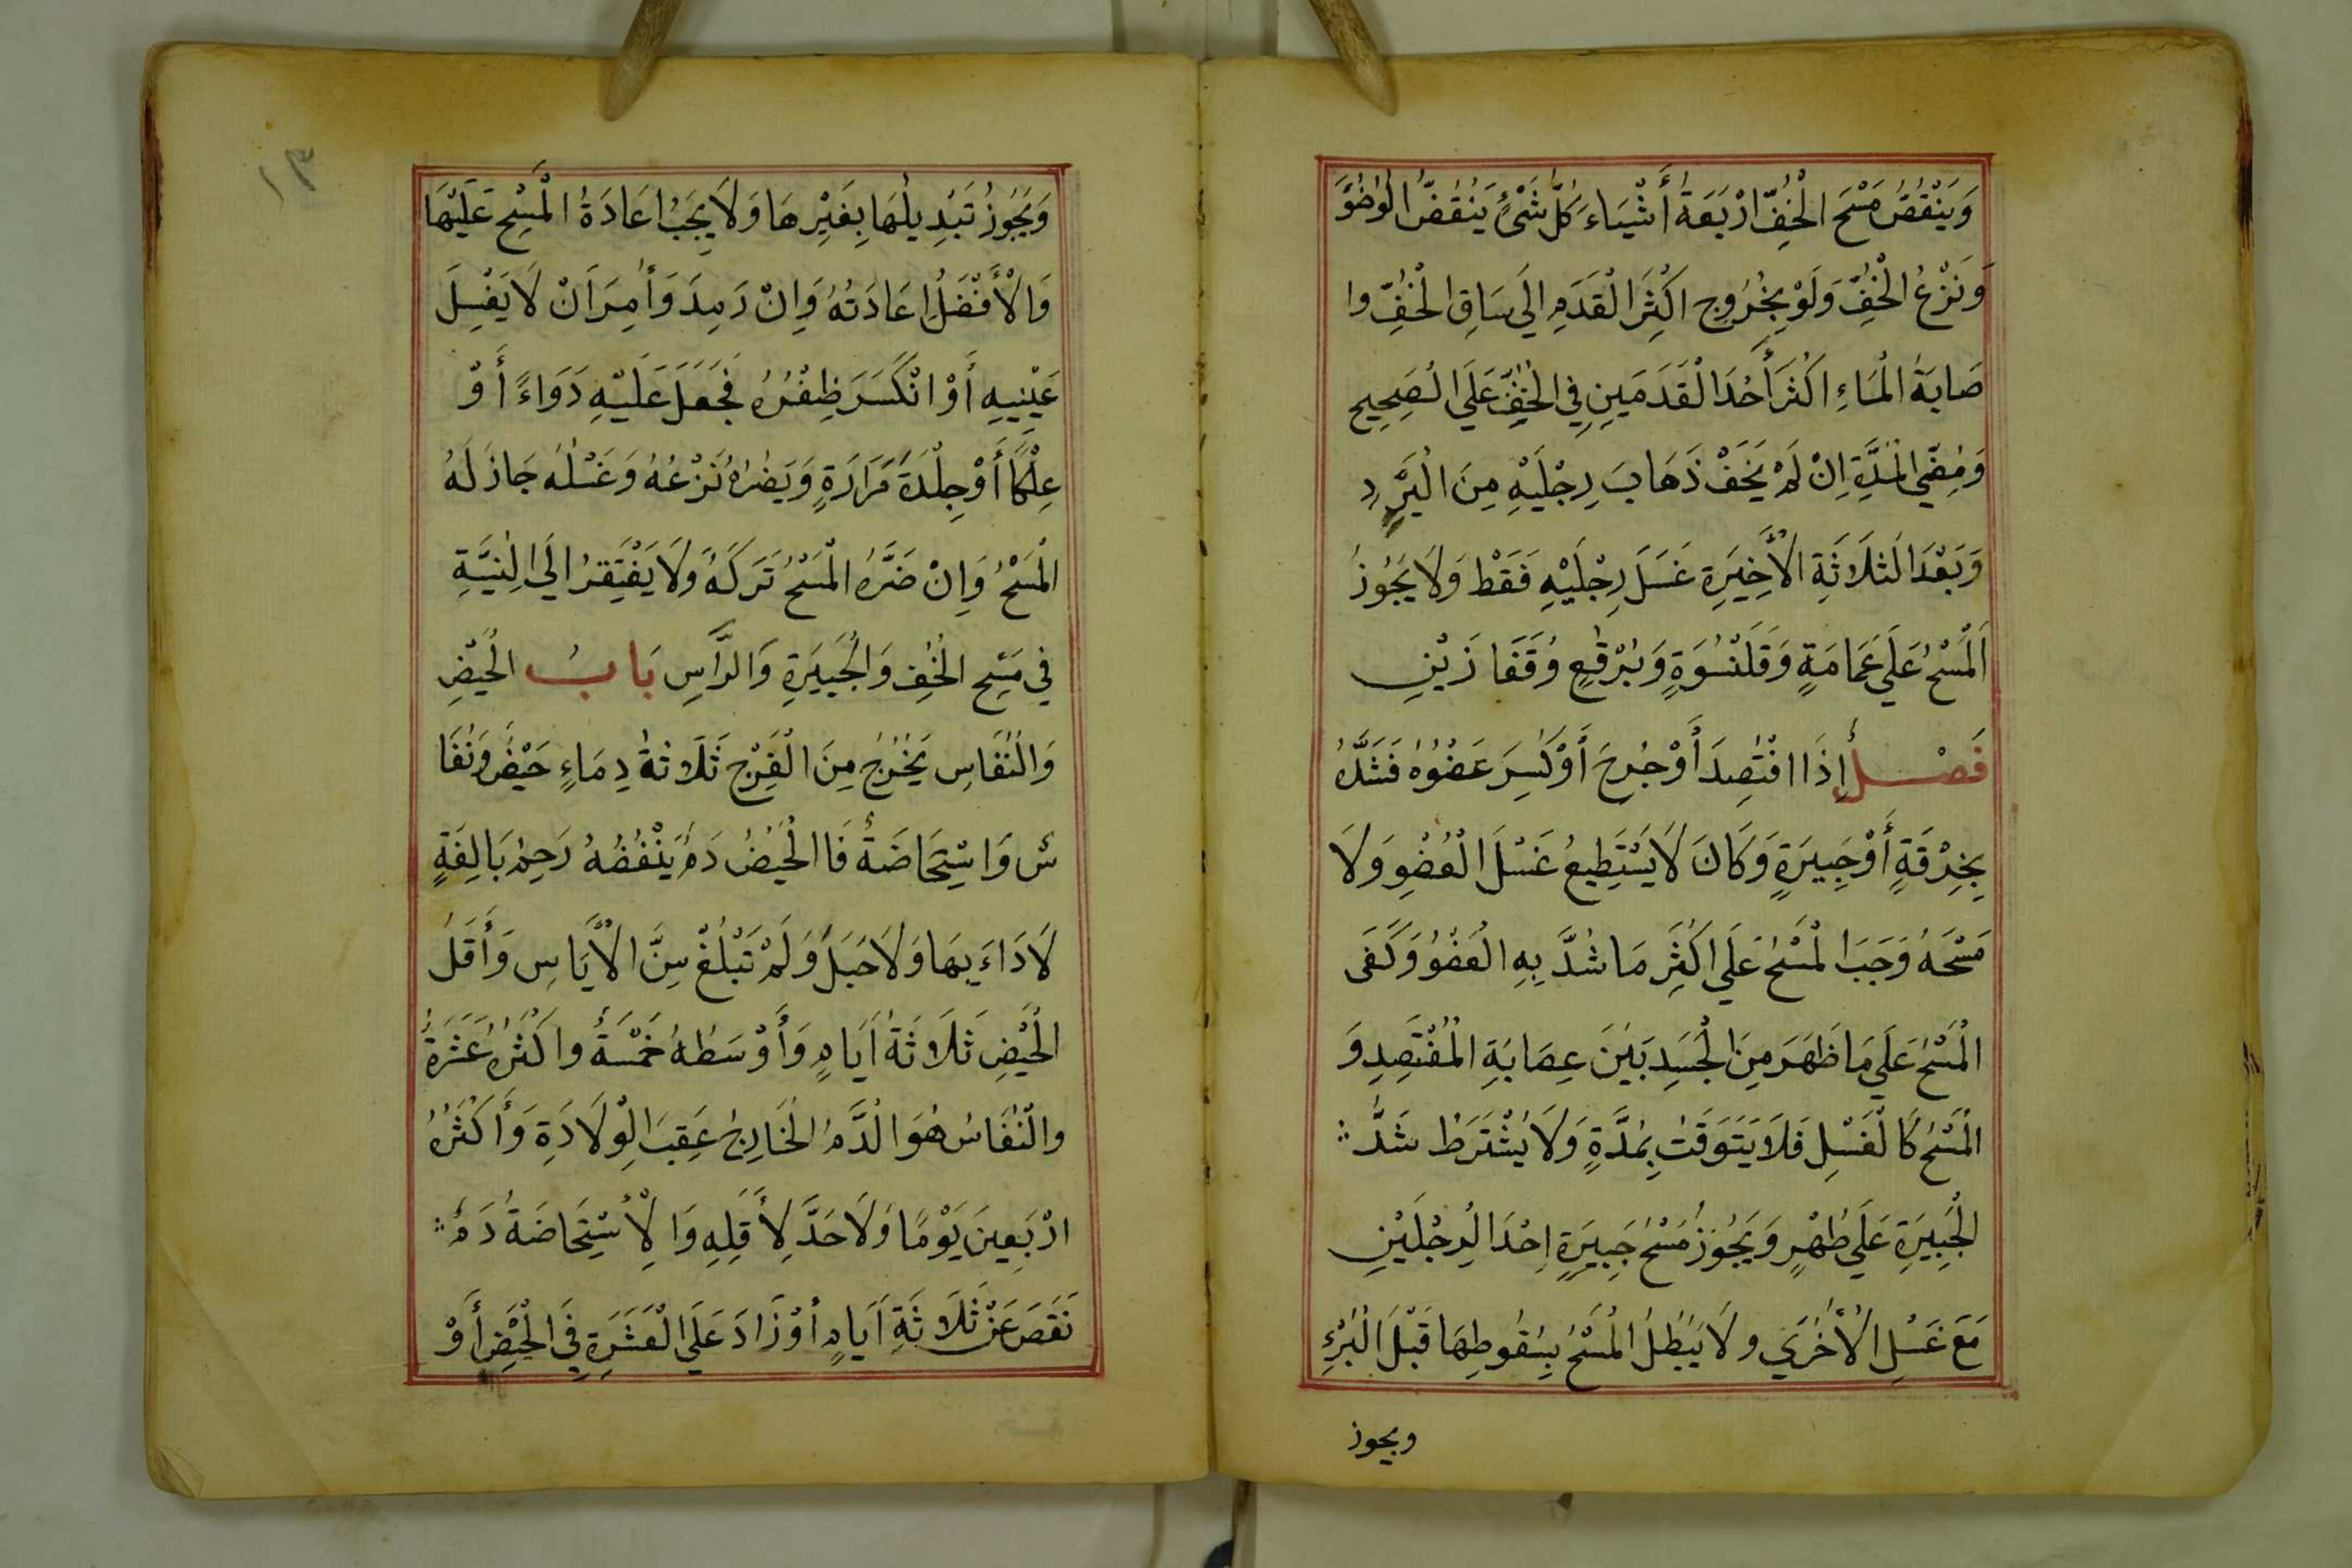 وَيَنْقُضُ مَسْحَ الْخُفِّ اَرْبَعَةُ أَشْيَاءَ كُلُّ شَيْءٍ يَنْقُضُ الْوُضُوَ
وَنَزْعُ الْخُفِّ وَلَوْ بِخُرُوجِ اَكْثَرِ الْقَدَمِ اِلَي سَاقِ الْخُفِّ وا
صَابَةُ الْمَاءِ اكْثَرَ أَحْدَ الْقَدَمَينِ فِي الْخُفِّ عَلَي الْصَحِيحِ
وَمُضِيّ الْمُدَّةِ اِنْ لَمْ يَخَفْ ذَهَابَ رِجْلَيْهِ مِنَ الْبَرْدِ
وَبَعْدَ الَثلَاثَةِ الْأَخِيَرةِ غَسَلَ رِجْلَيْهِ فَقَطْ وَلَا يَجُوزُ
اَلْمَسْحُ عَلَي عَمَامَةٍ وَقَلَنْسُوَةٍ وَبُرْقُعٍ وُقَفَا زَيْنِ
فَصْلٌ إِذَا افْتُصِدَ أَوْ جُرِحَ أَوْ كُسِرَ عَضْوُهُ فَشَدَّهُ
بِخِرْقَةٍ أَوْ جَبِيرَةٍ وَكَانَ لَا يَسْتَطِيعُ غَسْلَ الْعُضْوِ وَلَا
مَسْحَهُ وَجَبَ الْمَسْحُ عَلَي اَكْثَرِ مَا شُدَّ بِهِ الْعَضْوُ وَكَفَى
الْمَسْحُ عَلَي مَا ظَهَرَ مِنَ الْجَسَدِ بَيْنَ عِصَابَةِ الْمُفْتَصِدِ وَ
الْمَسْحُ كَالْغَسْلِ فَلَا يَتَوَقَتُ بِمُدَّةٍ وَلَا يُشْتَرَطُ شَدُّ ::
الْجَبِيَرةِ عَلَي طُهْرٍ وَيَجُوزُ مَسْحُ جَبِيَرةٍ اِحْدَا لرِجْلَيْنِ
مَعَ غَسْلِ الْأُخْرَي ولَا يَبْطُلُ الْمَسْحُ بِسُقُوطِهَا قَبْلَ الْبُرْءِ
ويجوز
١٣
وَيَجُوزُ تَبْدِيلُهَا بِغَيْرِهَا وَلَا يَجَبُ اعَادَةُ الْمَسْحِ عَلَيْهَا
وَالْأَفْضَلُ اِعَادَتُهُ وَاِنْ رَمِدَ وَأُمِرَ اَنْ لَا يَغْسِلَ
عَيْنِيهِ أَوْ انْكَسَرَ ظِفْرُهُ فَجَعَلَ عَلَيْهِ دَوَاءً أَوْ
عِلْكًا أَوْ جِلْدَةَ مَرَارَةٍ وَيَضُرُهُ نَزْعُهُ وَغَسْلُهُ جَازَ لَهُ
الْمَسْحُ وَاِنْ ضَرَّهُ الْمَسْحُ تَرَكَهُ وَلَا يَفْتَقِرُ الَي الِنيَّةِ
فِي مَسْحِ الْخُفِ وَالْجَبِيَرةِ وَالرَّاسِ بَابُ الْحَيْضِ
وَالنُفَاسِ يَخْرُجُ مِنَ الْفَرْجِ ثَلَاثةُ دِمَاءٍ حَيْضٌ وَنُفَا
س وَاسْتِحَاضَةٌ فَا الْحَيْضُ دَمٌ يَنْفُضُهُ رَحِمُ بَالِغَةٍ
لَا دَاءَ بِهَا وَلَا حَبَلَ وَلَمْ تَبْلُغْ سِنَّ الْأَيَاسِ وَأَقَلُ
الْحَيْضِ ثَلَاثَةُ اَيَامٍ وَأَوْسَطُهُ خَمْسَةٌ واكْثَرُهُ عَشَرَةٌ
والْنُفَاسُ هُوَ الْدَّمُ الْخَارِجُ عَقِبَ الِوْلَادَةِ وَأَكْثَرُهُ
ارْبَعِينَ يَوْمًا وَلَا حَدَّ لِأَقَلِهِ وَالِأسْتِحَاضَةُ دَمٌ ::
نَقَصَ عَنْ ثَلَاثَةِ اَيَامٍ أوْ زَادَ عَلَي الْعَشَرَةِ فِي الْحَيْضِ أَوْ